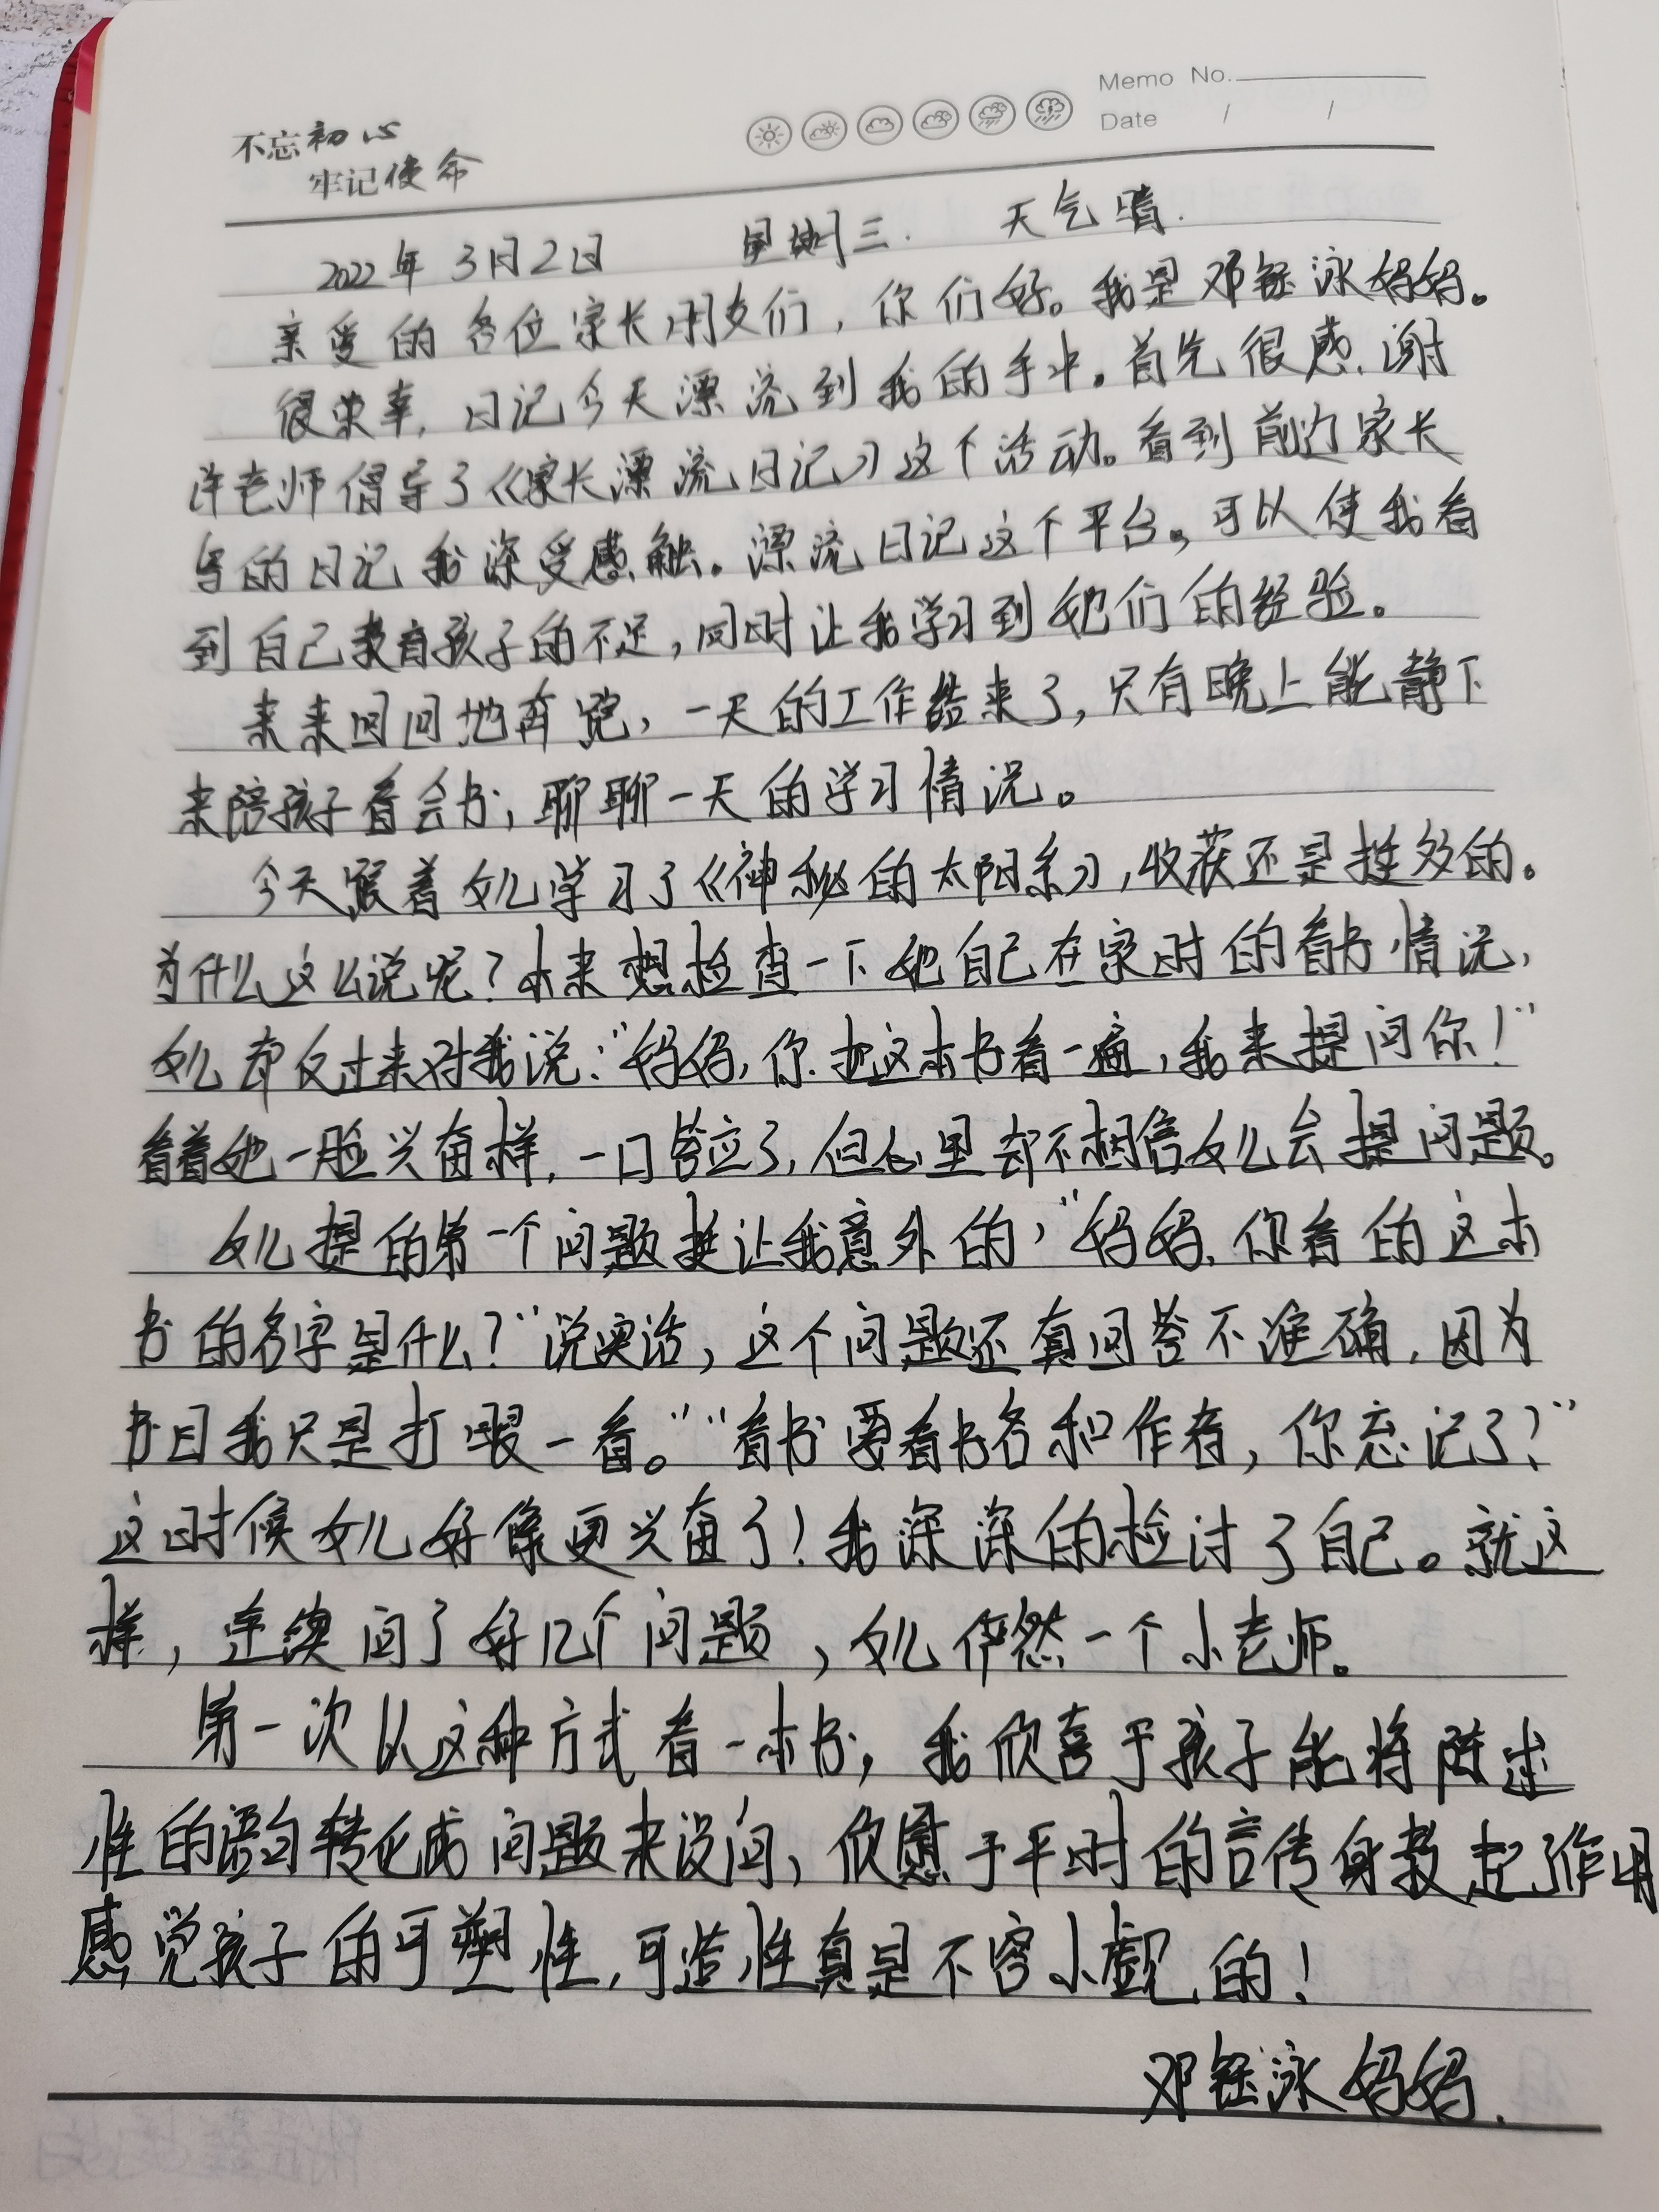 不忘初心
牢记使命
Memo No.
Date / /
2022年3月2日 星期三. 天气晴.
亲爱的各位家长朋友们，你们好。我是邓钰泳妈妈。
很荣幸，日记今天漂流到我的手中。首先很感谢
许老师倡导了《家长漂流日记》这个活动。看到前边家长
写的日记我深受感触。漂流日记这个平台。可以使我看
到自己教育孩子的不足，同时让我学习到她们的经验。
来来回回地奔跑，一天的工作结束了，只有晚上能静下
来陪孩子看会书，聊聊一天的学习情况。
今天跟着女儿学习了《神秘的太阳系》，收获还是挺多的。
为什么这么说呢？本来想检查一下她自己在家时的看书情况，
女儿却反过来对我说：“妈妈，你把这本书看一遍，我来提问你！”
看着她一脸兴奋样，一口答应了，但心里却不相信女儿会提问题。
女儿提的第一个问题挺让我意外的，“妈妈，你看的这本
书的名字是什么？”说实话，这个问题还真回答不准确，因为
书目我只是打眼一看。”“看书要看书名和作者，你忘记了？”
这时候女儿好像更兴奋了！我深深的检讨了自己。就这
样，连续问了好几个问题，女儿俨然一个小老师。
第一次以这种方式看一本书，我欣喜于孩子能将陈述
性的语句转化成问题来设问，欣慰于平时的言传身教起作用
感觉孩子的可塑性，可造性真是不容小觑的！
邓钰泳妈妈.